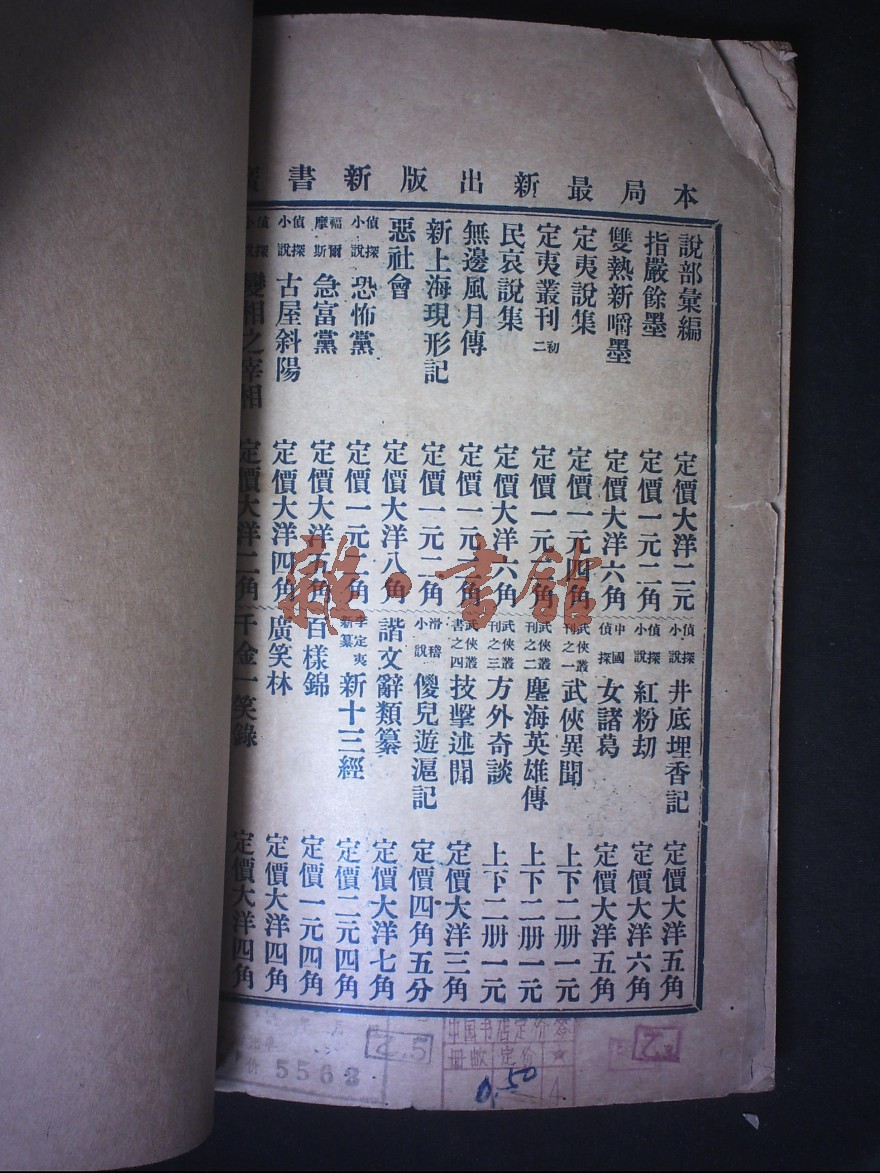 本局最新出版新書
說部彙編 定價大洋二元
指嚴餘墨 定價一元二角
雙熱新嚼墨 定價大洋六角
定夷說集 定價一元四角
定夷叢刊 初二 定價一元
民哀說集 定價大洋六角
無邊風月傳 定價一元
新上海現形記 定價一元二角
惡社會 定價大洋八角
偵探小說 恐怖黨 定價一元二角
福爾摩斯 急富黨 定價大洋五角
偵探小說 古屋斜陽 定價大洋四角
偵探小說 變相之宰相 定價大洋二角
偵探小說 井底埋香記 定價大洋五角
偵探小說 紅粉劫 定價大洋六角
中國偵探 女諸葛 定價大洋五角
武俠叢刊之一 武俠異聞 上下二册一元
武俠叢刊之二 塵海英雄傳 上下二册一元
武俠叢刊之三 方外奇談 上下二册一元
武俠叢書之四 技擊述聞 定價大洋三角
滑稽小說 傻兒遊滬記 定價四角五分
諧文辭類纂 定價大洋七角
李定夷新纂 新十三經 定價二元四角
百樣錦 定價一元四角
廣笑林 定價大洋四角
千金一笑錄 定價大洋四角
雜·書館
中国书店定价签
册数 定价
0.50
4
乙.5
5563